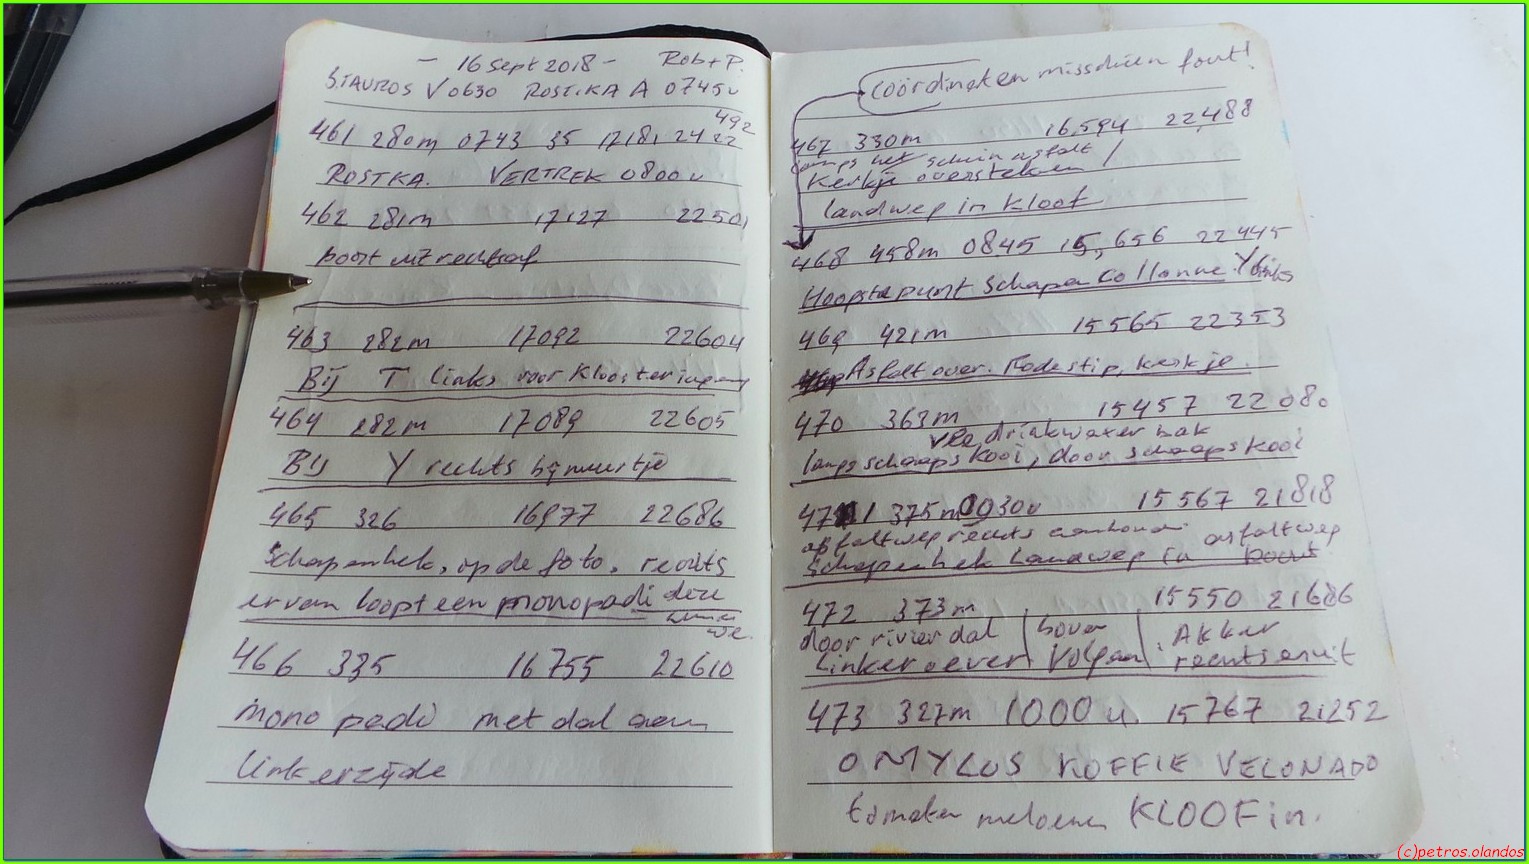 - 16 sept 2018 - Rob + P.
STAUROS V 0630 ROSTIKA A 0745u
492
461 280m 0743 35 17181 2422
ROSTKA. VERTREK 0800u
462 281m 17127 22501
poort uit rechtsaf
463 282m 17092 22604
Bij T links voor Kloosteringang
464 282m 17089 22605
Bij Y rechts bij muurtje
465 326 16977 22686
Schapenhek, op de foto, rechts
ervan loopt een monopadi deze
466 335 16755 22610
mono padi met dal aan
linkerzijde
Coördinaten misschien fout!
467 330m 16.594 22,488
langs het asfalt /
Kerkje oversteken
landweg in kloof
468 458m 0845 15,656 22445
Hoogste punt Schapen Collonne Y links
469 421m 15565 22353
Asfalt over. Rode stip, kerkje.
470 363m 15457 22080
via drinkwater bak
langs schaapskooi, door schaapskooi
471 375m 0930u 15567 21818
asfaltweg rechts aanhouden asfaltweg
Schapenhek Landweg in
472 373m 15550 21686
door rivierdal | boven | Akker
Linkeroever Volgen rechts eruit
473 327m 1000 u. 15767 21252
OMYLOS KOFFIE VELONADO
tomaten meloenen KLOOF in.
(c)petros.olandos